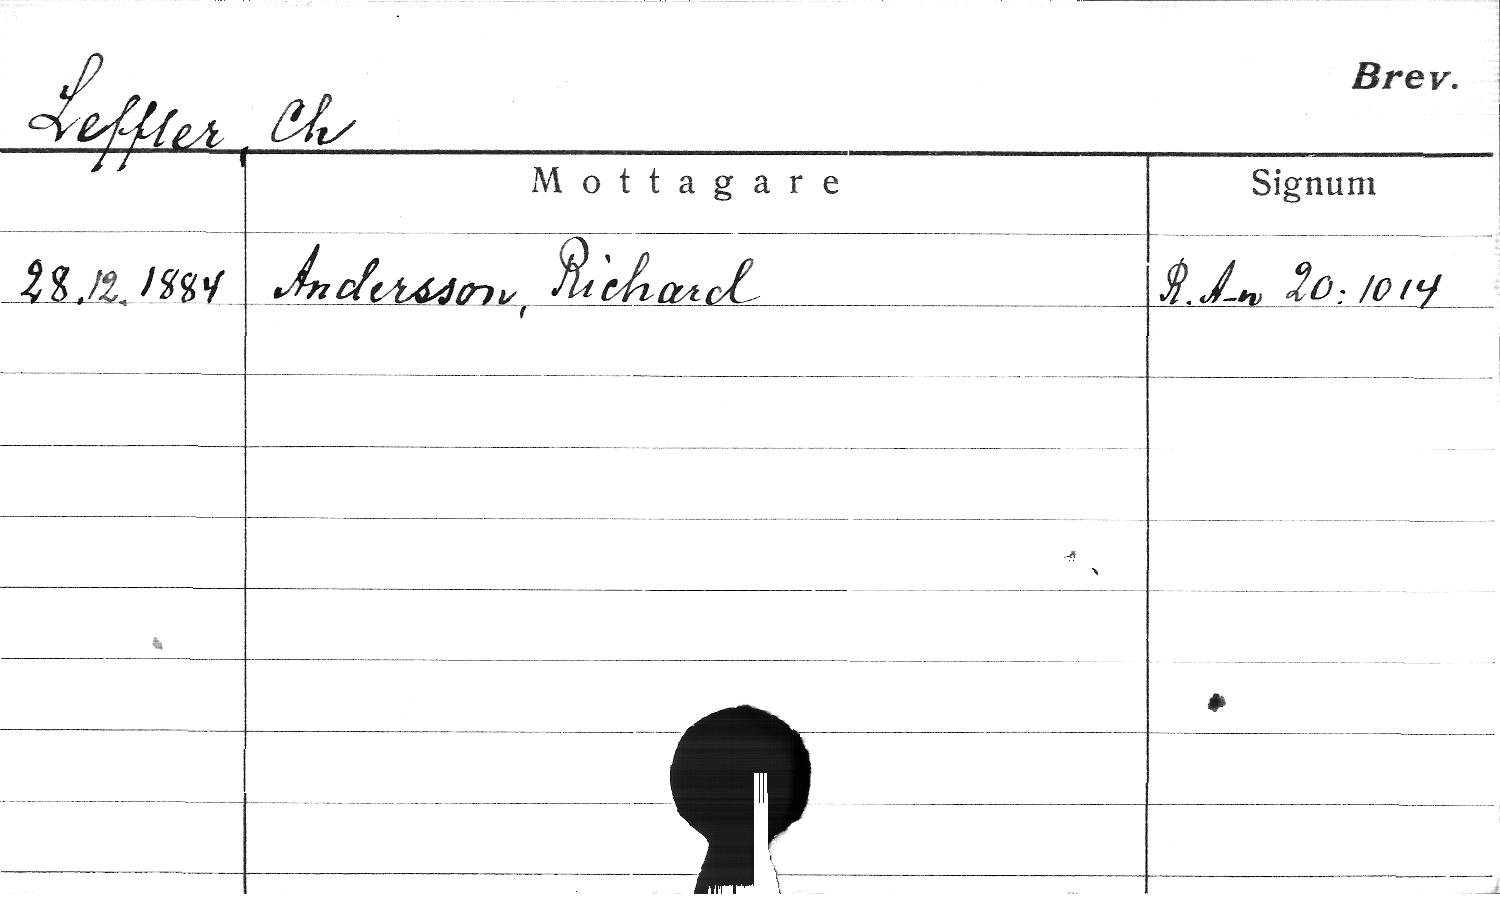 Brev.
Leffler, Ch
Mottagare Signum
28.12.1884 Andersson, Richard R. A-n 20:1014